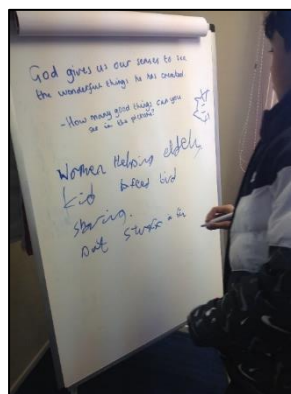 God gives us our senses to see
the wonderful things he has created
- How many good things can you
see in the picture?
Women Helping elderly
kid breed bird
sharing.